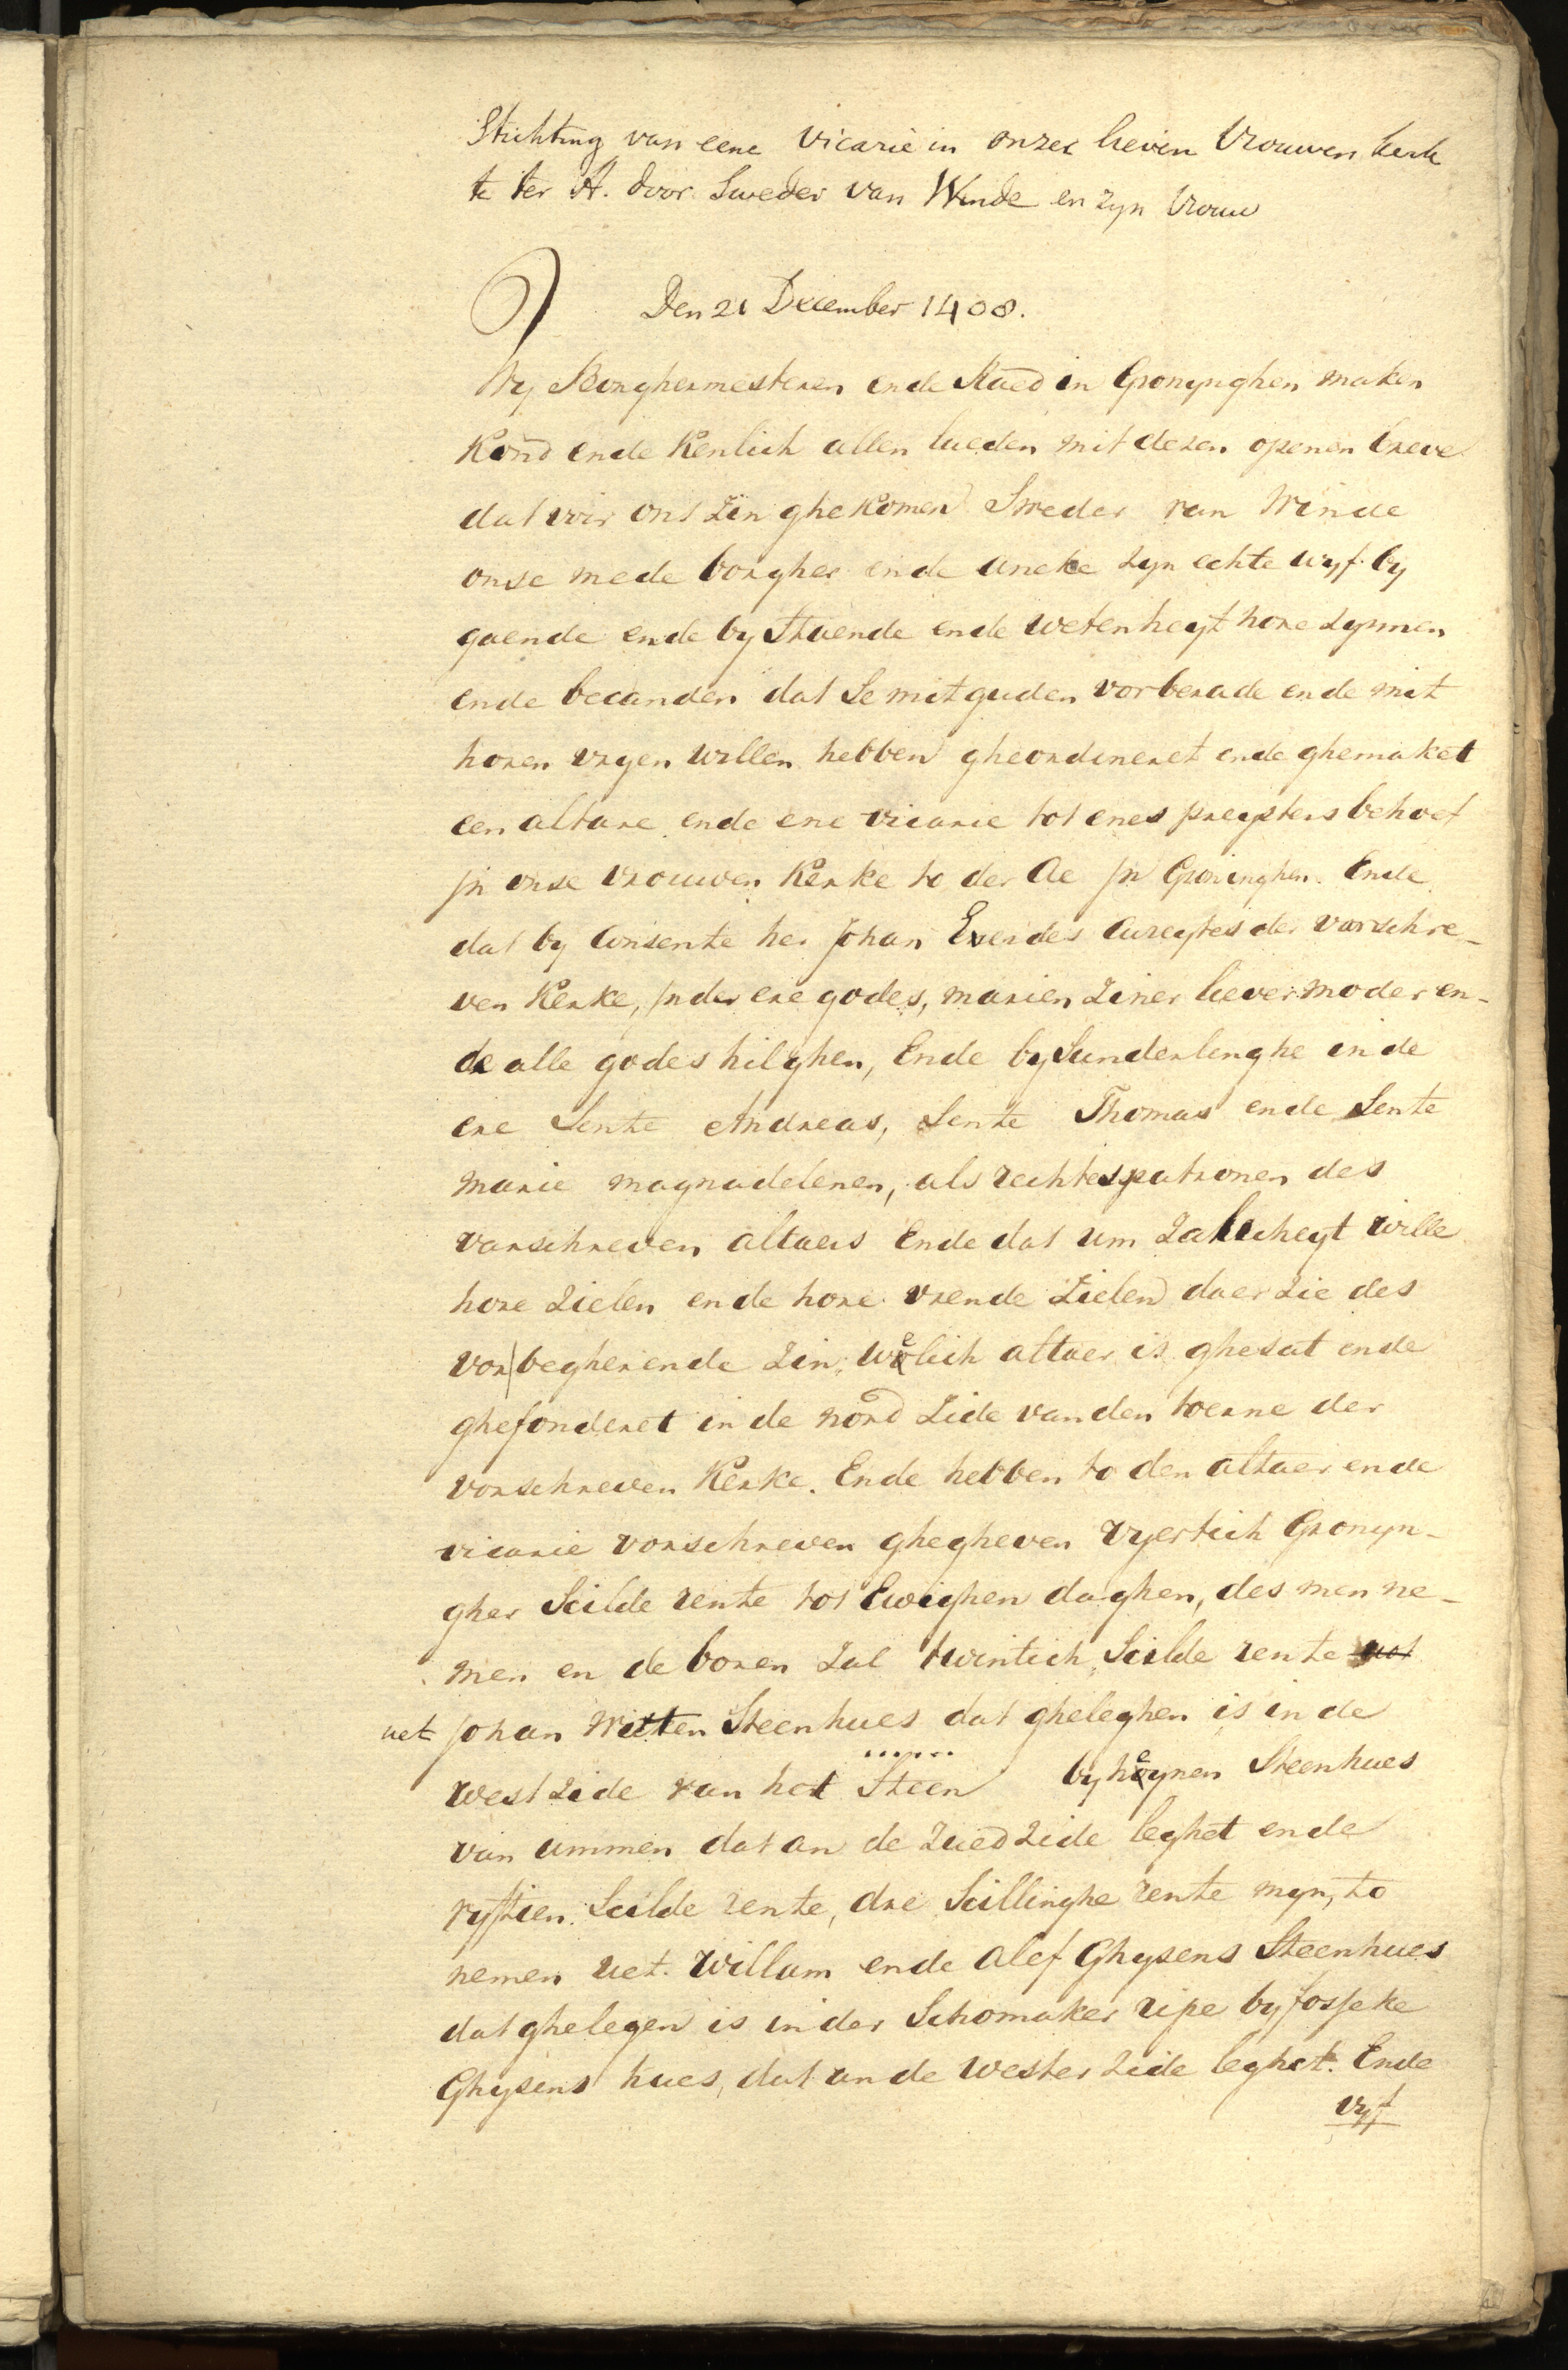 Stichting van eene vicarie in onzer lieven Vrouwen kerk
te ter A. door Sweder van Winde en zyn Vrouw
Den 21 December 1408.
Wy Borghermesteren ende Raed in Gronynghen maken
Kond ende Kenlich allen lueden mit dezen openen breve
dat voir ons zin ghekomen Sweder van Winde
onse mede borgher ende aneke zyn echte wyf by
gaende ende by staende ende wetenheyt hore zynnen
ende becanden dat se mit guden vorberade ende mit
horen vryen willen hebben gheordineret ende ghemaket
een altare ende ene vicarie tot enes preysters behoef
jn onse vrouwen Kerke to der Ae jn Groninghen. Ende
dat by consente her Johan Everdes cureytes der vorschre-
ven Kerke, jn der ere godes, marien ziner liever moder en-
de alle godes hilghen, Ende by sunderlenghe in de
ere Sente Andreas, Sente Thomas ende Sente
marie magnadelenen, als rechtes patronen des
vorschreven altaers Ende dat um zalicheyt wille
hore zielen ende hore vrende zielen daer zie des
vor begherende zin, welich altaer is ghesat ende
ghefonderet in de nord zide van den toerne der
vorschreven Kerke. Ende hebben to den altaer ende
vicarie vorschreven ghegheven vyertich Gronyn-
gher Scilde rente tot Ewighen daghen, des men ne-
men en de boren zal twintich Scilde rente uot
uet Johan Witten Steenhues dat gheleghen is in de
west zide van hot Steen by heynen Steenhues
van ummen dat an de zued zide leghet ende
vyftien Scilde rente, dre Scillinghe rente myn, to
nemen uet Willam ende Alef Ghysens Steenhues
dat ghelegen is in der Schomaker ripe by fosseke
Ghysens hues, dat an de wester zide leghet. Ende
vyf